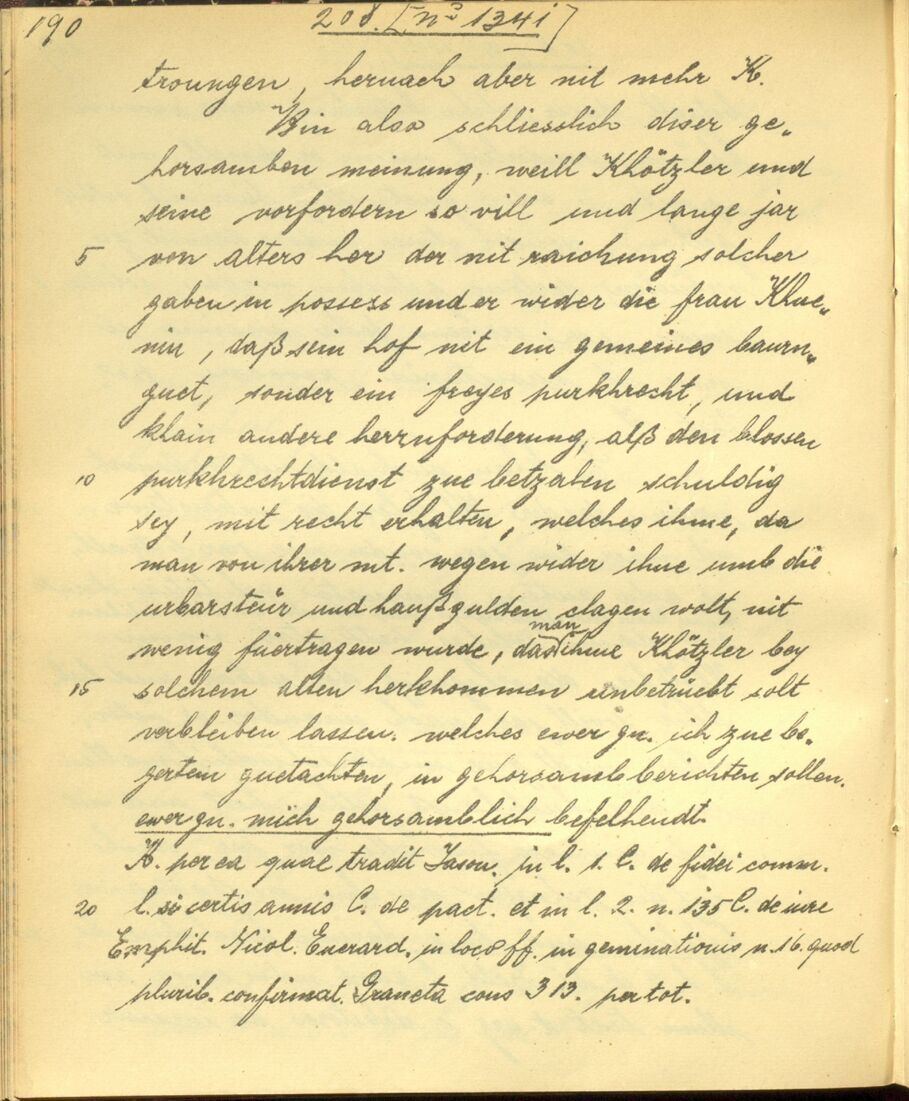 190
208. [nº 1341]
troungen, hernach aber nit mehr K.
Bin also schliesslich diser ge„
horsamben meinung, weill Khötzler und
seine vorfordern so vill und lange jar
5 von alters her der nit raichung solcher
gaben in possess und er wider die frau Khue„
nin, daß sein hof nit ein gemeines baurn„
guet, sonder ein freyes purkhrecht, und
khlain andere herrnforderung, alß den blossen
10 purkhrechtdienst zue betzalen schuldig
sey, mit recht erhalten, welches ihme, da
man von ihrer mt. wegen wider ihne umb die
urbarsteür und haußgulden clagen wolt, nit
wenig füertragen wurde, das man ihme Khötzler bey
15 solchem alten herkhommen unbetrüebt solt
verbleiben lassen. welches ewer gn. ich zue be„
gertem guetachten, in gehorsamb berichten sollen.
ewer gn. mich gehorsamblich befelhendt.
K. per ea quae tradit Jason. in l. 1. C. de fidei comm.
20 l. si certis annis C. de pact. et in l. 2. n. 135 C. de iure
Emphit. Nicol. Euerard. in loco ff. in geminationis n. 16. quod
plurib. confirmat. Graneta cons 313. per tot.